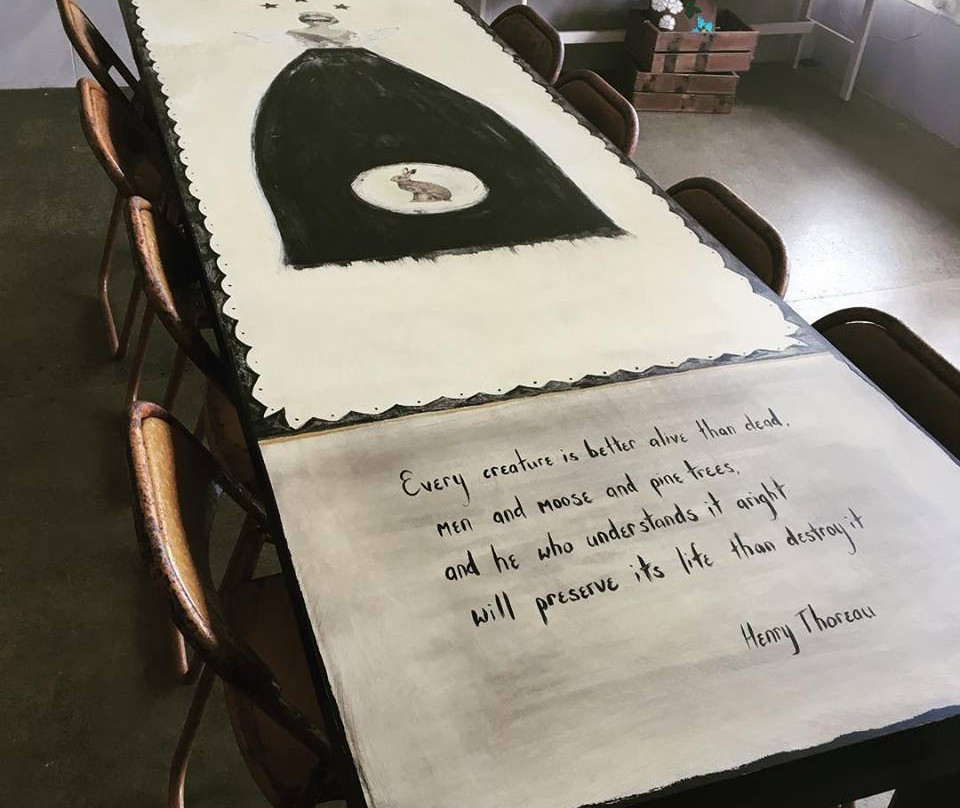 Every creature is better alive than dead,
men and moose and pine trees,
and he who understands it aright
will preserve it's life than destroy it
Henry Thoreau